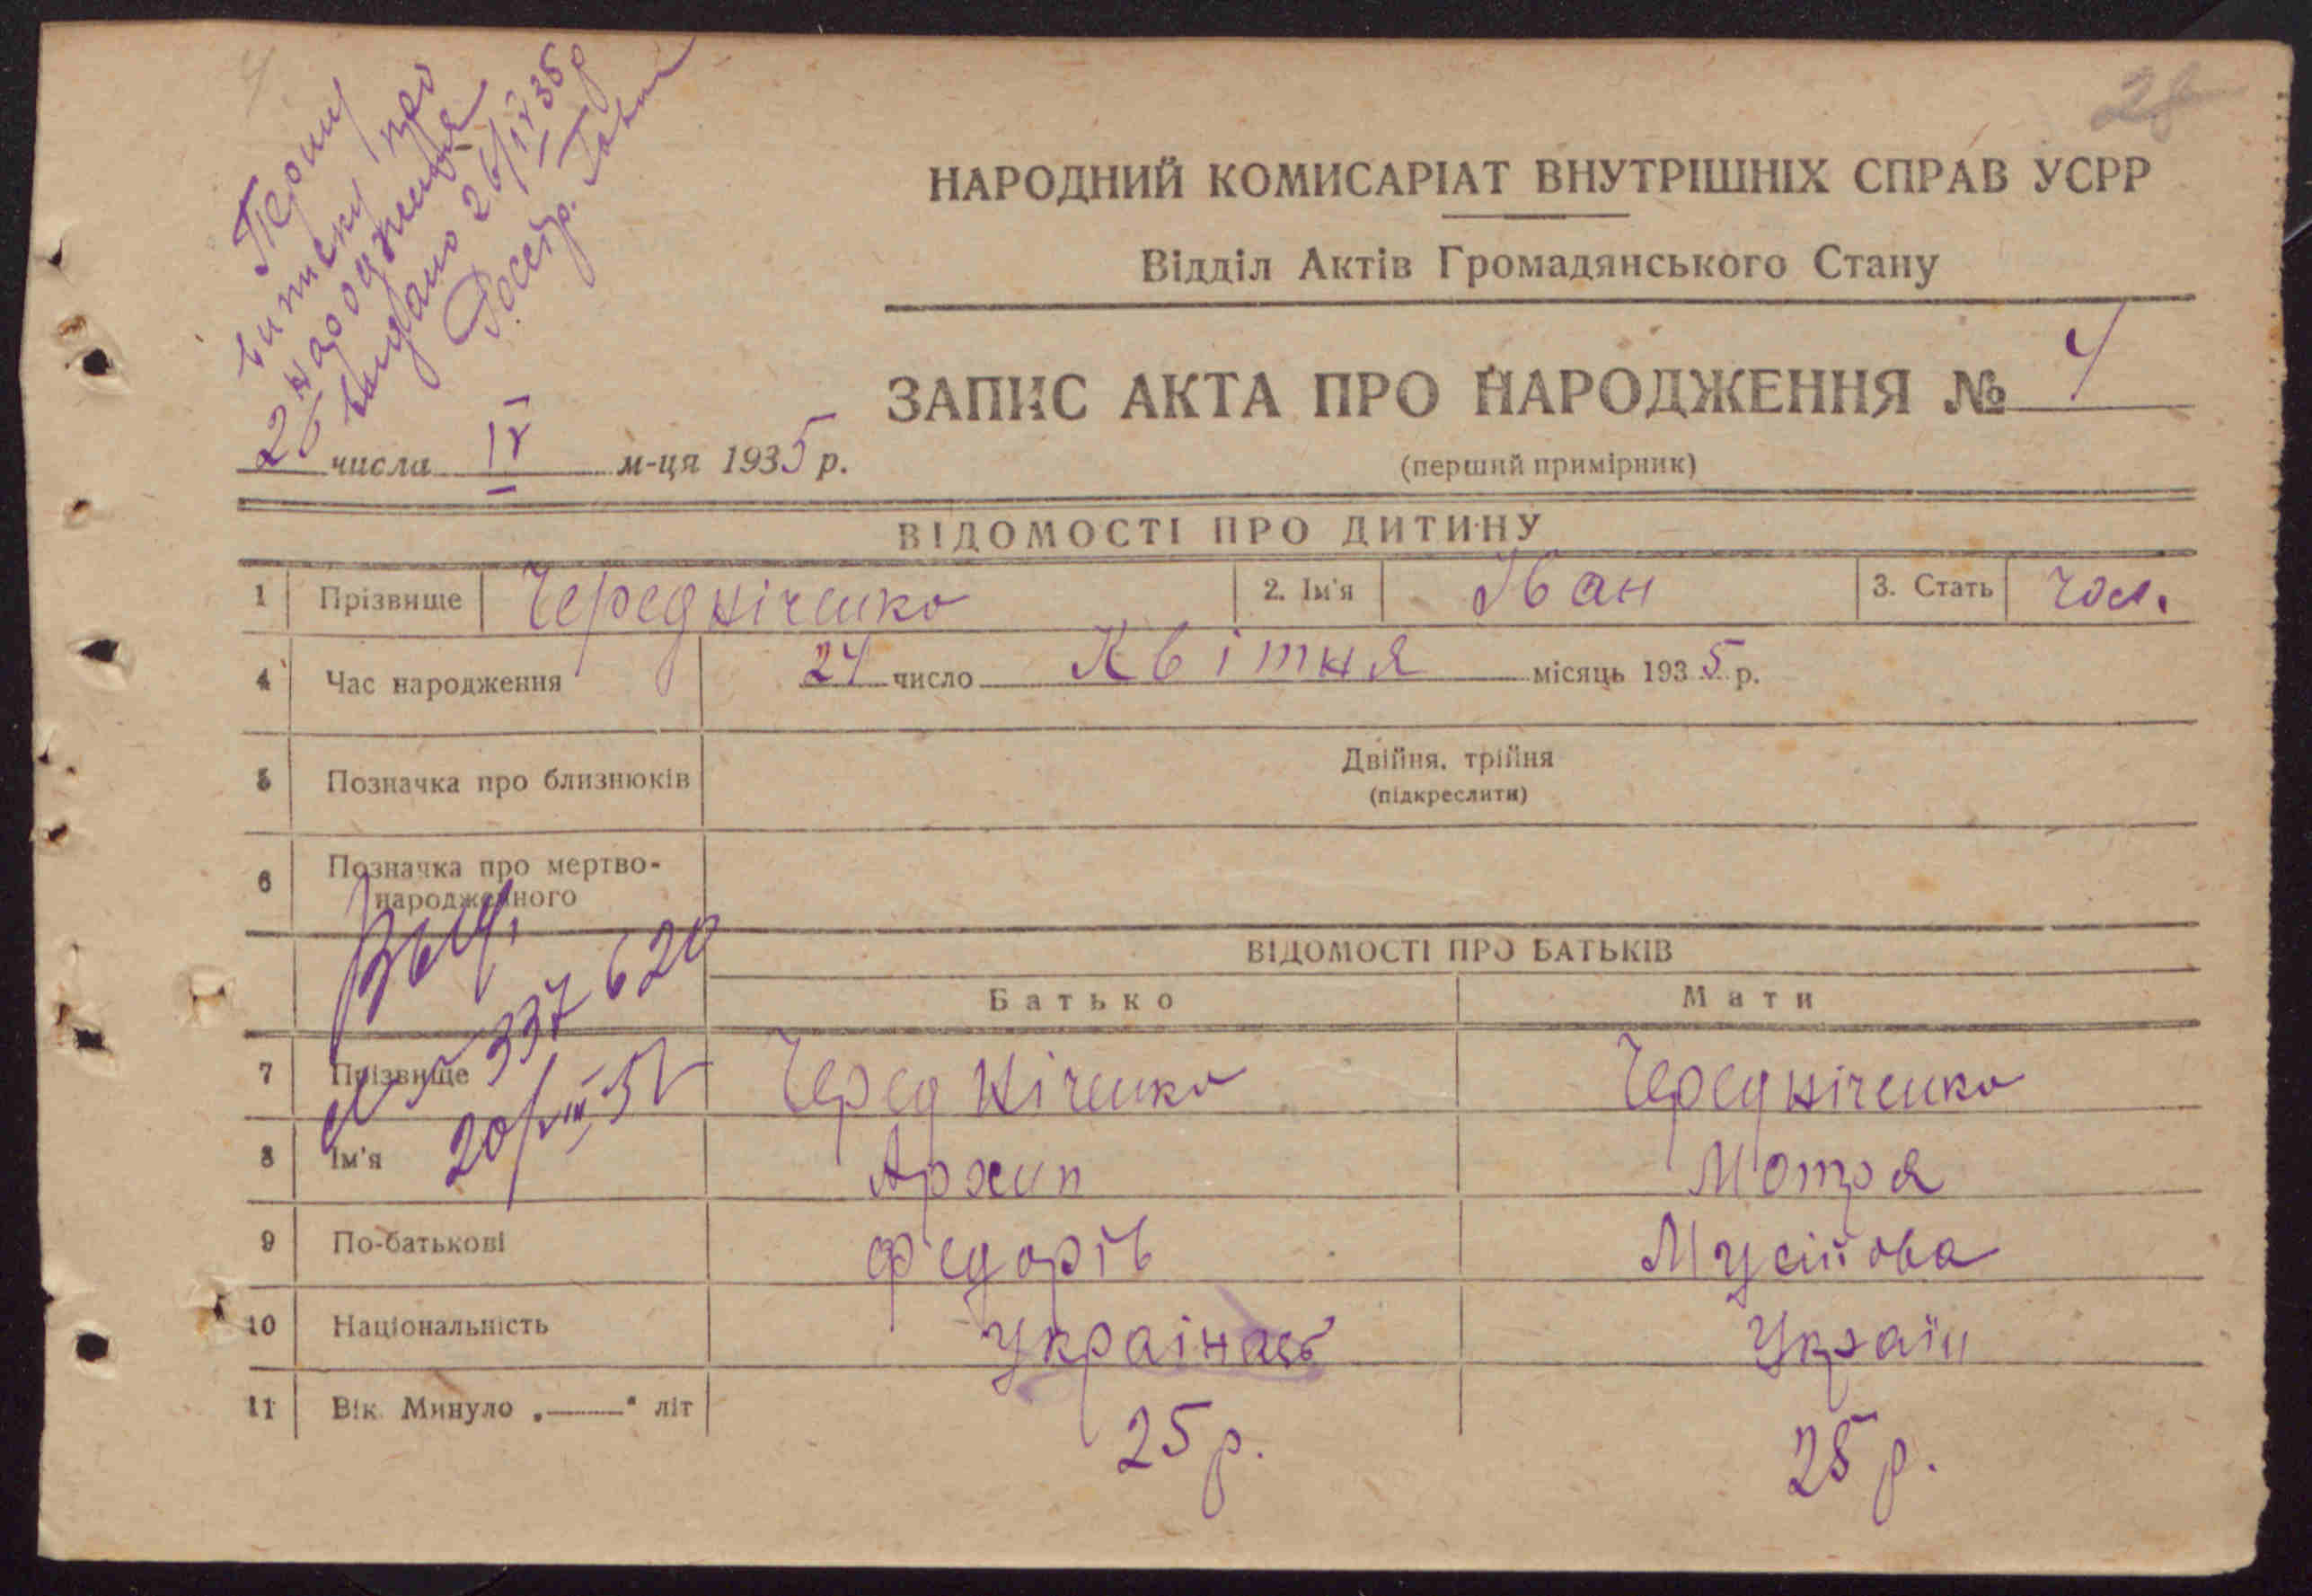 4
28
Першу
виписку про
народження
видано 26/IV 35 р
НАРОДНИЙ КОМИСАРІАТ ВНУТРІШНІХ СПРАВ УСРР
Відділ Актів Громадянського Стану
ЗАПИС АКТА ПРО НАРОДЖЕННЯ № 4
(перший примірник)
26 числа IV м-ця 1935 р.
ВІДОМОСТІ ПРО ДИТИНУ
1 Прізвище Чередніченко 2. Ім'я Іван 3. Стать чол.
4 Час народження 24 число Квітня місяць 1935 р.
5 Позначка про близнюків Двійня, трійня
(підкреслити)
6 Позначка про мертво-
народженного
Выд.
337620
20/VIII 51
ВІДОМОСТІ ПРО БАТЬКІВ
Батько Мати
7 Прізвище Чередніченко Чередніченко
8 Ім'я Архип Мотря
9 По-батькові Федорів Мусіїова
10 Національність Українець Україн
11 Вік. Минуло „——" літ 25 р. 25 р.